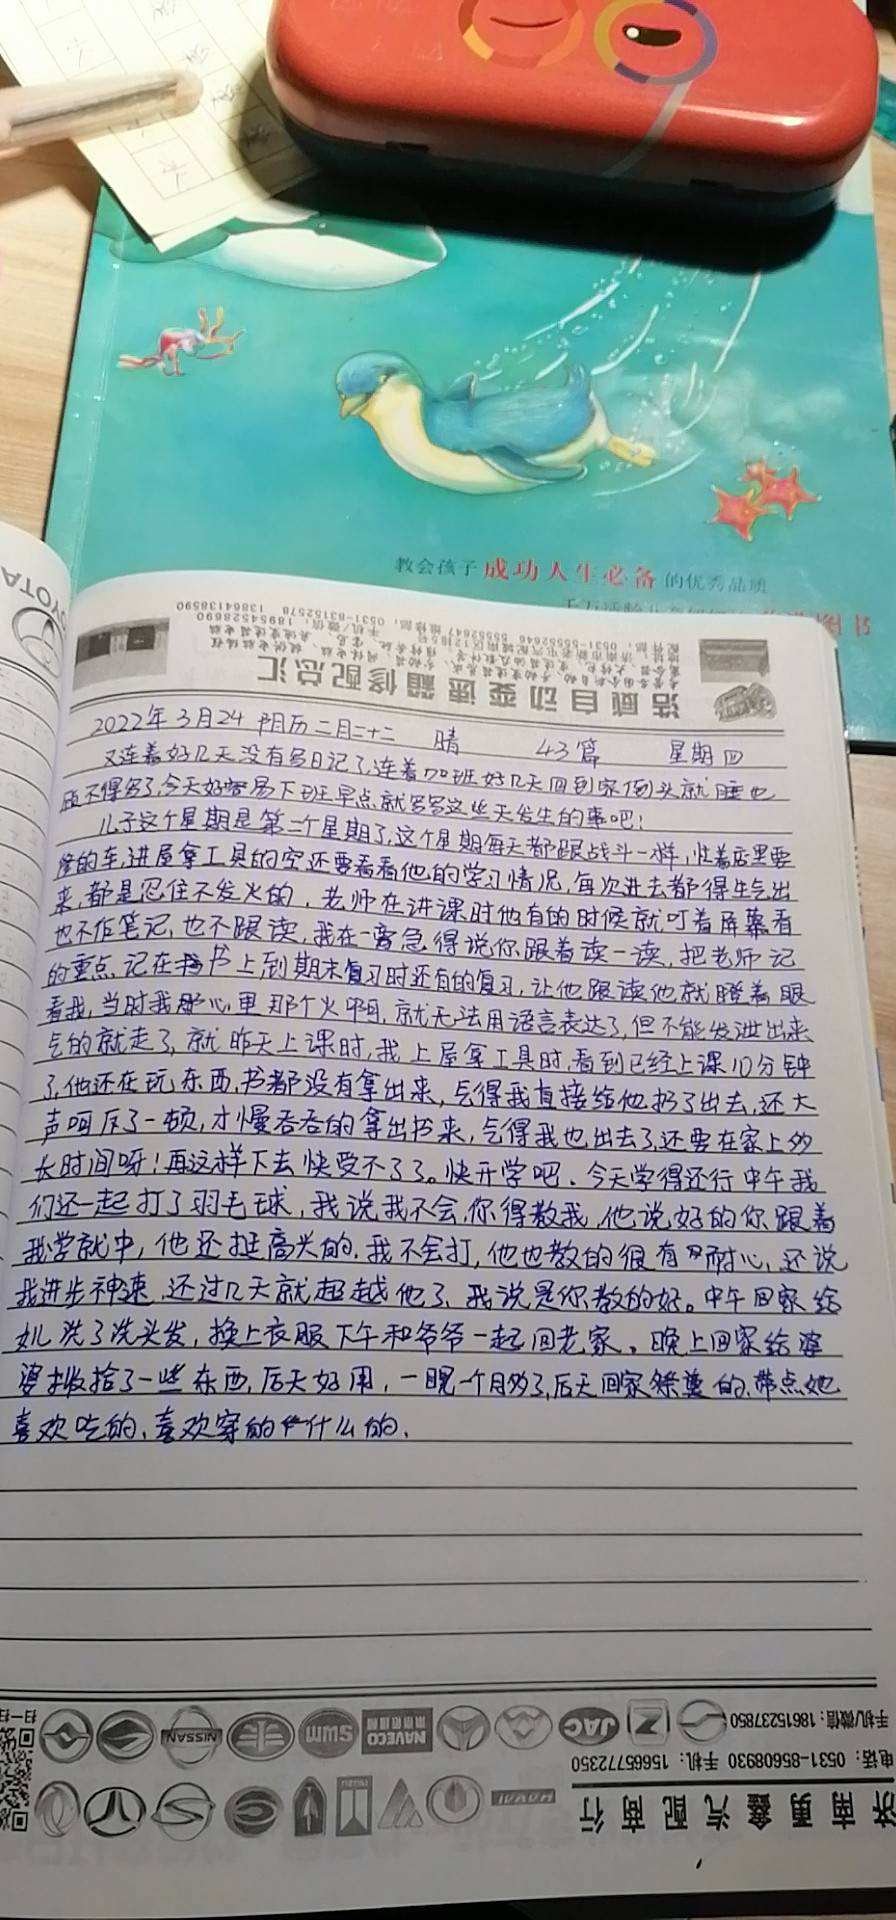 教会孩子成功人生必备的优秀品质
TOYOTA
浩威自动变速箱修配总汇
2022年3月24 阴历二月二十二 晴 43篇 星期四
又连着好几天没有写日记了,连着加班好几天回到家倒头就睡也
顾不得写了,今天好容易下班早点就写写这些天发生的事吧!
儿子这个星期是第二个星期了,这个星期每天都跟战斗一样,忙着店里要
修的车,进屋拿工具的空还要看看他的学习情况,每次进去都得生气出
来,都是忍住不发火的,老师在讲课时他有的时候就盯着屏幕看
也不作笔记,也不跟读,我在一旁急得说你跟着读一读,把老师记
的重点记在书上到期末复习时还有的复习,让他跟读他就瞪着眼
看我,当时我心里那个火啊,就无法用语言表达了,但不能发泄出来
气的就走了,就昨天上课时,我上屋拿工具时,看到已经上课10分钟
了,他还在玩东西,书都没有拿出来,气得我直接给他扔了出去,还大
声呵斥了一顿,才慢吞吞的拿出书来,气得我也出去了,还要在家上多
长时间呀!再这样下去快受不了了。快开学吧、今天学得还行中午我
们还一起打了羽毛球,我说我不会,你得教我,他说好的你跟着
我学就中,他还挺高兴的,我不会打,他也教的很有耐心,还说
我进步神速,还过几天就超越他了,我说是你教的好。中午回家给
她洗了洗头发,换上衣服下午和爷爷一起回老家。晚上回家给婆
婆收拾了一些东西,后天好用,一晃一个月多了,后天回家祭奠的,带点她
喜欢吃的、喜欢穿的什么的.
NISSAN SWM NAVECO JAC 手机/微信:18615237850
电话:0531-85608930 手机:15665772350
ISUZU HAVAL 济南勇鑫汽配商行